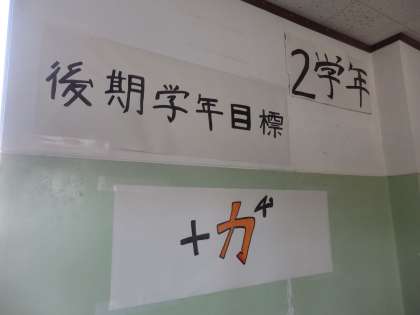 2学年
後期学年目標
+力⁴